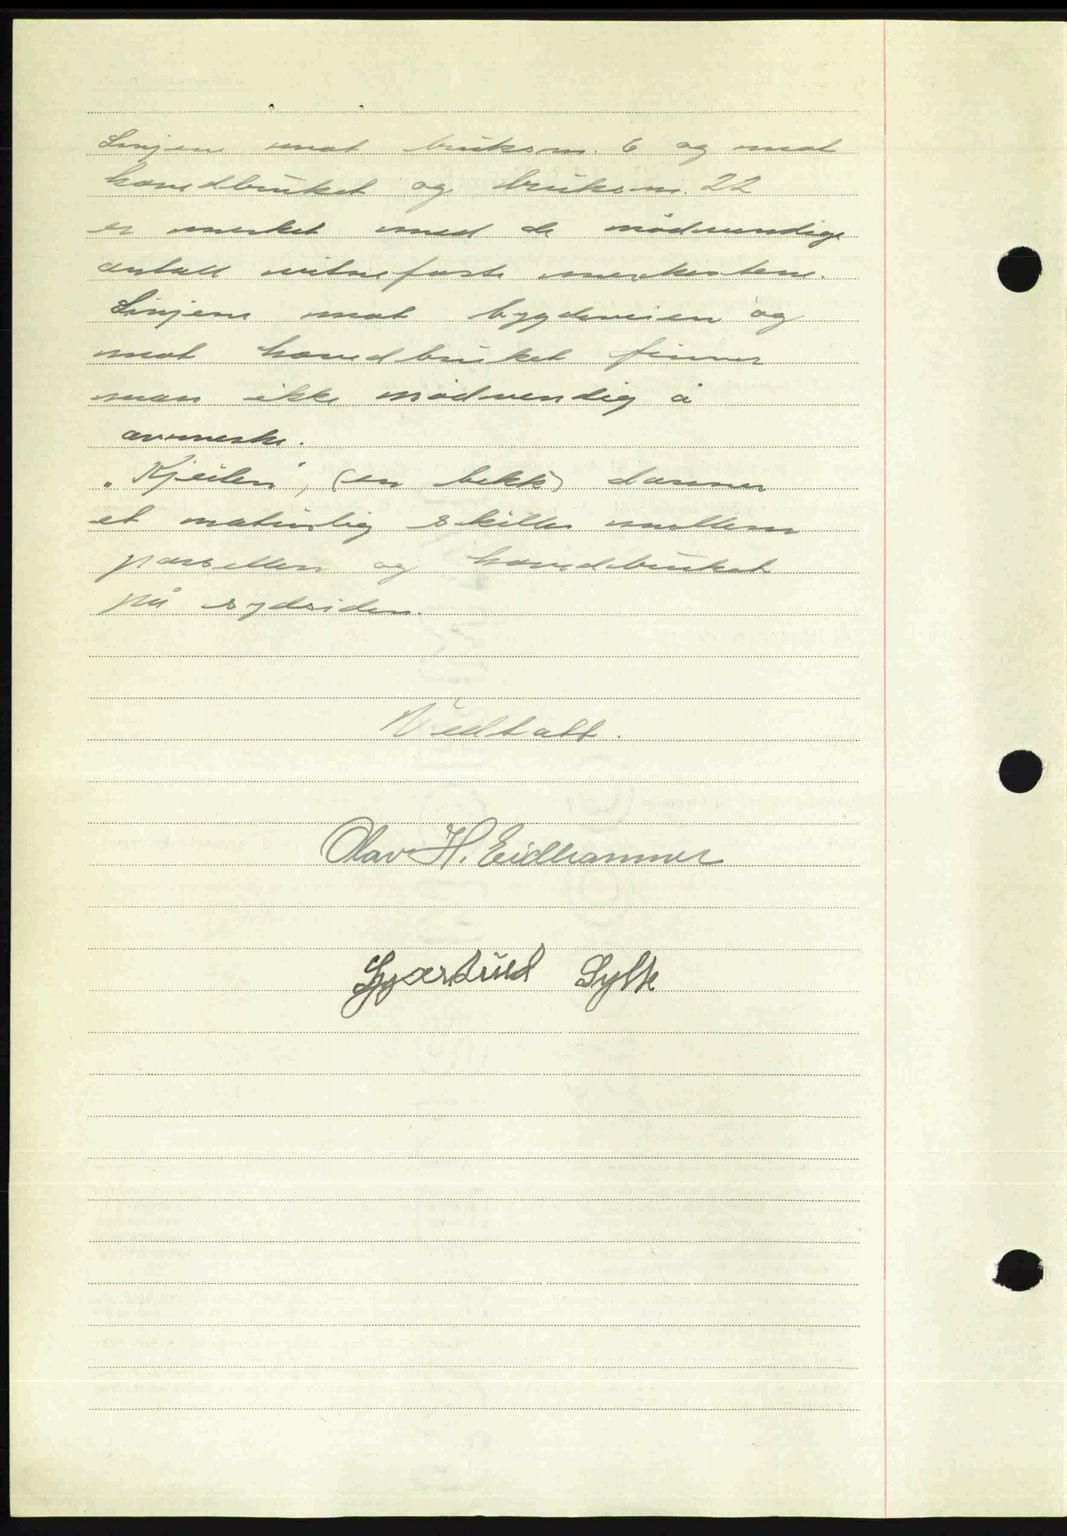 Linjene mot bruksnr. 6 og mot
hovedbruket og bruksnr. 22
er merket med de nödvendige
antall vitnefaste merkestene.
Linjene mot bygdeveien og
mot hovedbruket finner
man ikke nödvendig å
avmerke.
„Kjeilen", (en bekk) danner
et naturlig skille mellem
parsellen og hovedbruket
på sydsiden.
Vedtatt.
Olav H. Eidhammer
Sylte